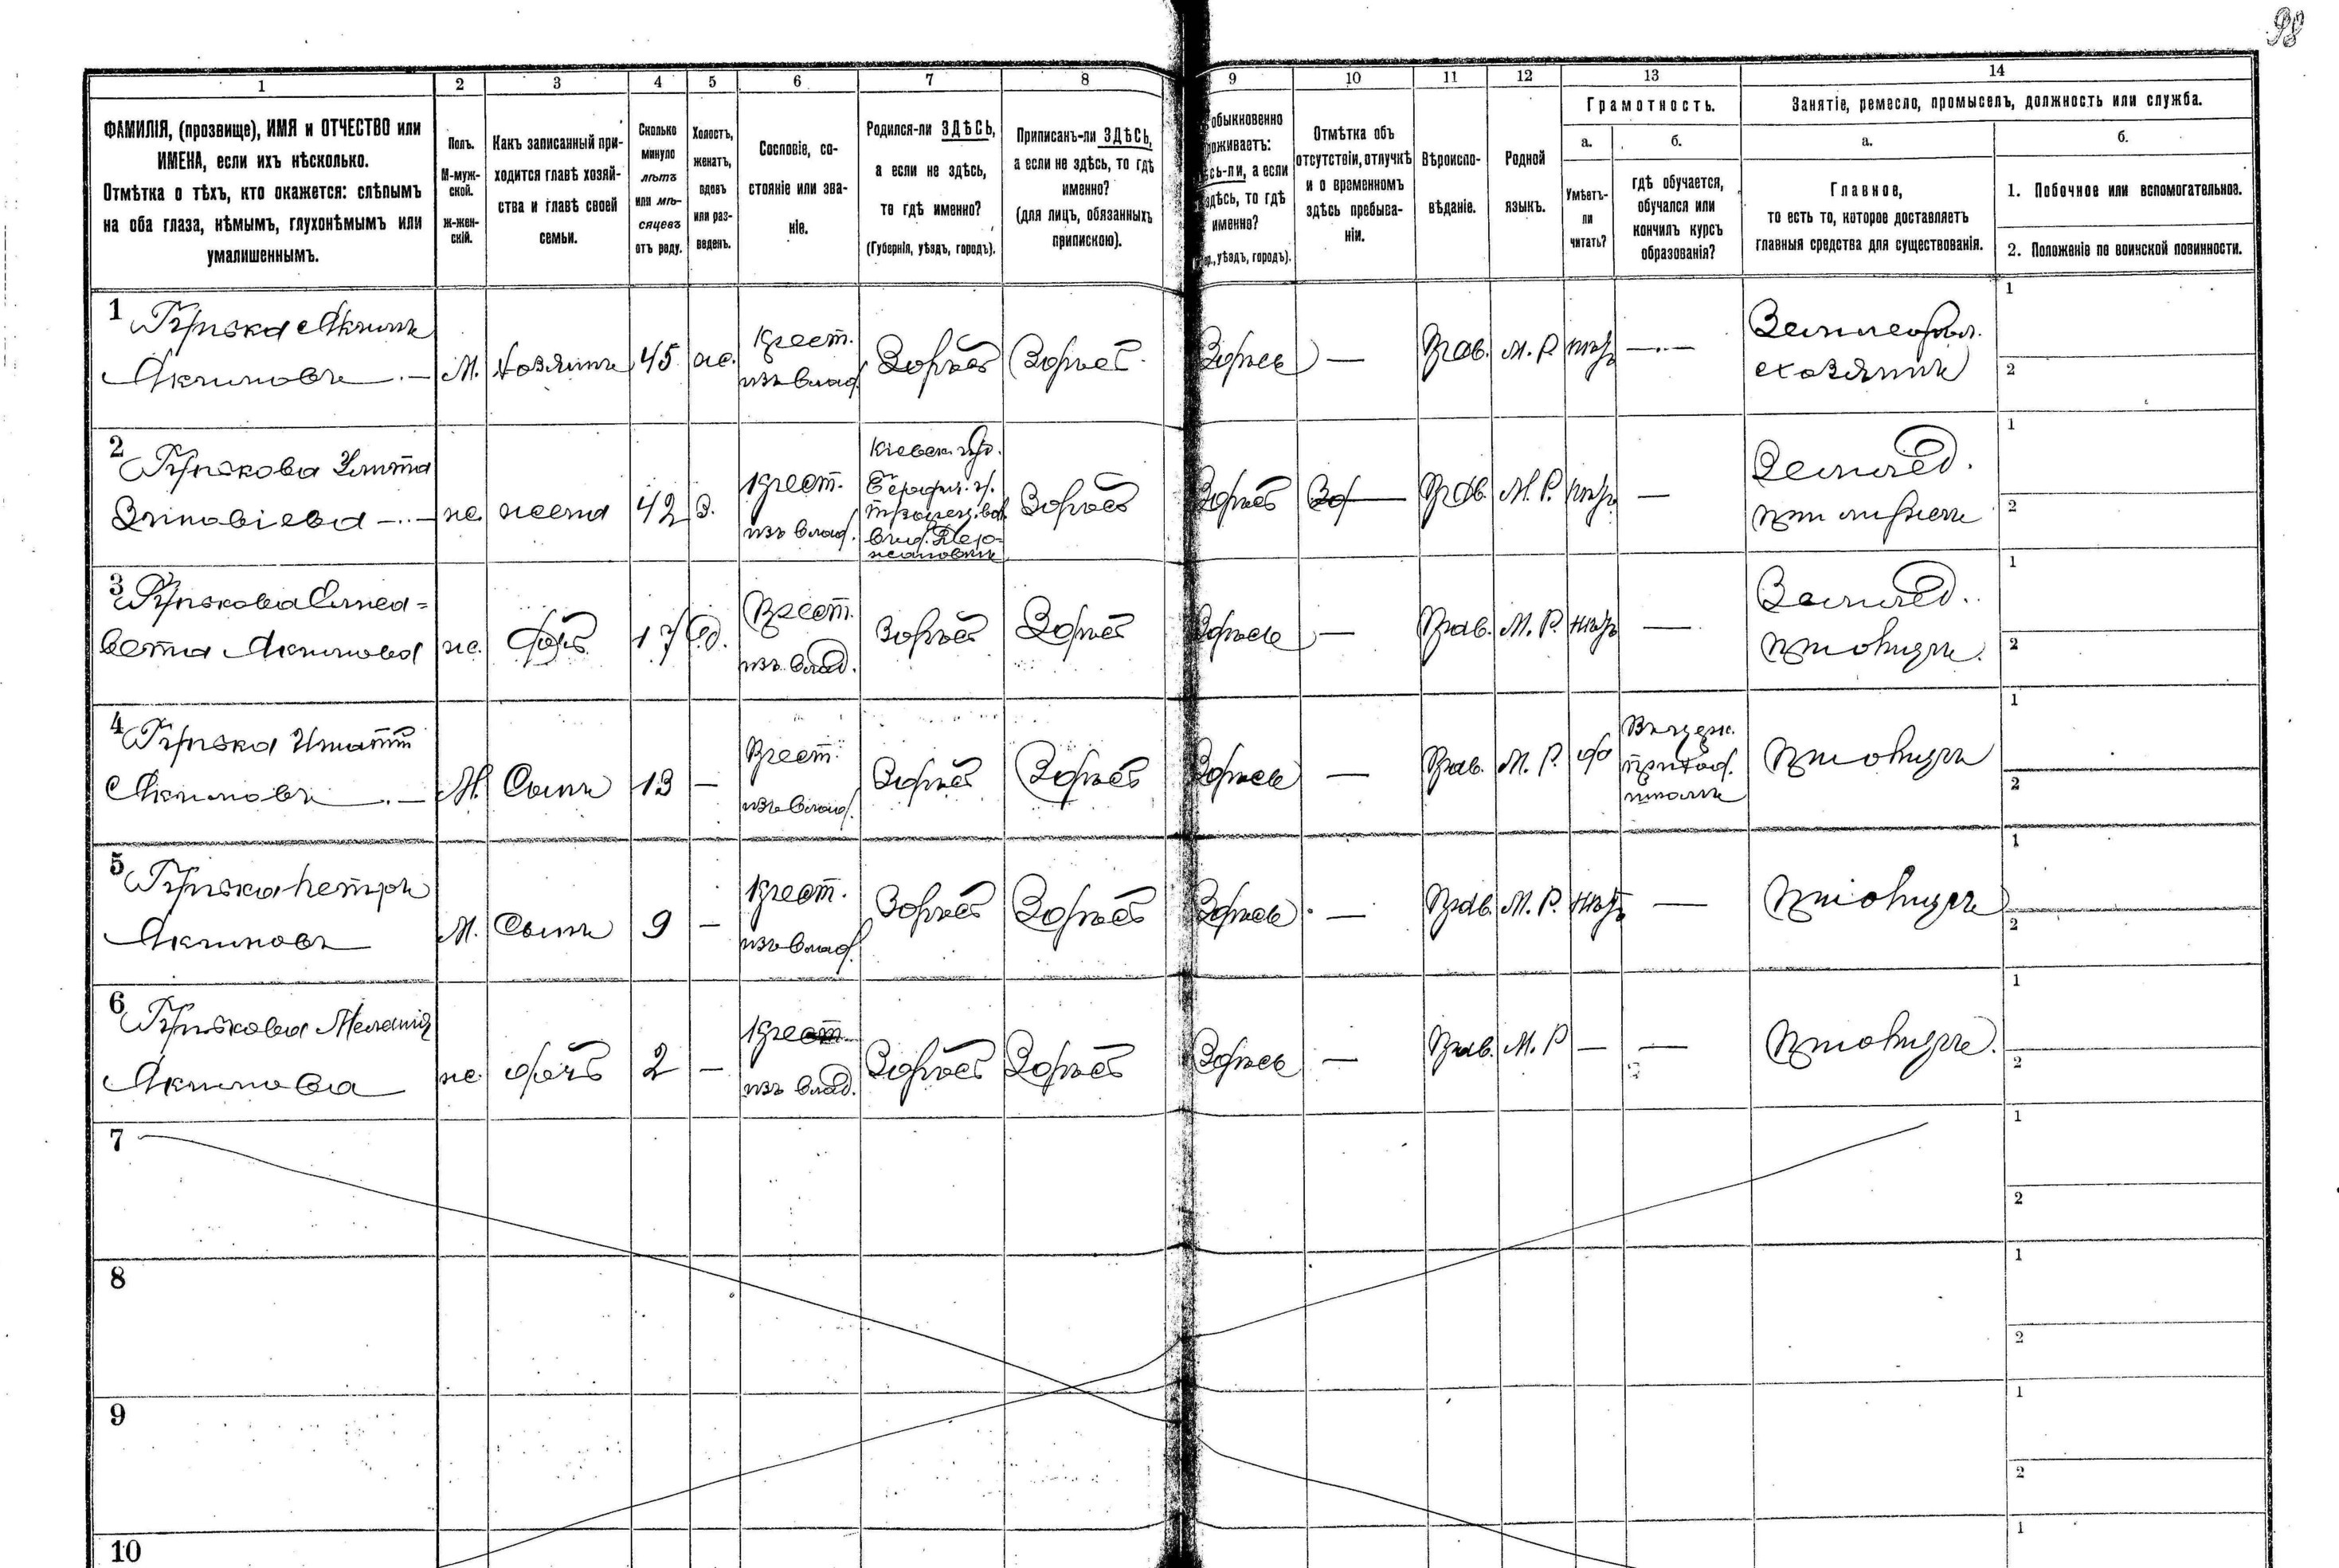 98
1 2 3 4 5 6 7 8 9 10 11 12 13 14
ФАМИЛІЯ, (прозвище), ИМЯ и ОТЧЕСТВО или
ИМЕНА, если ихъ нѣсколько.
Отмѣтка о тѣхъ, кто окажется: слѣпымъ
на оба глаза, нѣмымъ, глухонѣмымъ или
умалишеннымъ.
Полъ.
М-муж-
ской.
Ж-жен-
скій.
Какъ записанный при-
ходится главѣ хозяй-
ства и главѣ своей
семьи.
Сколько
минуло
лѣтъ
или мѣ-
сяцевъ
отъ роду.
Холостъ,
женатъ,
вдовъ
или раз-
веденъ.
Сословіе, со-
стояніе или зва-
ніе.
Родился-ли ЗДѢСЬ,
а если не здѣсь,
то гдѣ именно?
(Губернія, уѣздъ, городъ).
Приписанъ-ли ЗДѢСЬ,
а если не здѣсь, то гдѣ
именно?
(для лицъ, обязанныхъ
припискою).
обыкновенно
оживаетъ:
сь-ли, а если
здѣсь, то гдѣ
именно?
уѣздъ, городъ).
Отмѣтка объ
отсутствіи, отлучкѣ
и о временномъ
здѣсь пребыва-
ніи.
Вѣроиспо-
вѣданіе.
Родной
языкъ.
Грамотность.
а.
Умѣетъ-
ли
читать?
б.
гдѣ обучается,
обучался или
кончилъ курсъ
образованія?
Занятіе, ремесло, промыселъ, должность или служба.
а.
Главное,
то есть то, которое доставляетъ
главныя средства для существованія.
б.
1. Побочное или вспомогательное.
2. Положеніе по воинской повинности.
1
Акимъ
Акимовъ
М.
Хозяинъ
45
ж.
крест.
изъ влад.
Здѣсь
Здѣсь
Здѣсь
—
Прав.
М. Р.
нѣтъ
—
хозяинъ
1
2
2
Зиновіева
ж.
жена
42
З.
крест.
изъ влад.
Кіевск. губ.
Здѣсь
Здѣсь
Прав.
М. Р.
нѣтъ
—
Землед.
при мужѣ
1
2
3
Елиса-
вета Акимова
ж.
дочь
17
крест.
изъ влад.
Здѣсь
Здѣсь
Здѣсь
—
Прав.
М. Р.
нѣтъ
—
Землед.
при отцѣ.
1
2
4
Игнатій
Акимовъ
М.
Сынъ
13
—
крест.
изъ влад.
Здѣсь
Здѣсь
Здѣсь
—
Прав.
М. Р.
да
школѣ
при отцѣ
1
2
5
Петръ
Акимовъ
М.
Сынъ
9
—
крест.
изъ влад.
Здѣсь
Здѣсь
Здѣсь
—
Прав.
М. Р.
нѣтъ
—
при отцѣ
1
2
6
Меланія
Акимова
ж.
дочь
2
—
крест.
изъ влад.
Здѣсь
Здѣсь
Здѣсь
—
Прав.
М. Р.
—
—
при отцѣ.
1
2
7
1
2
8
1
2
9
1
2
10
1